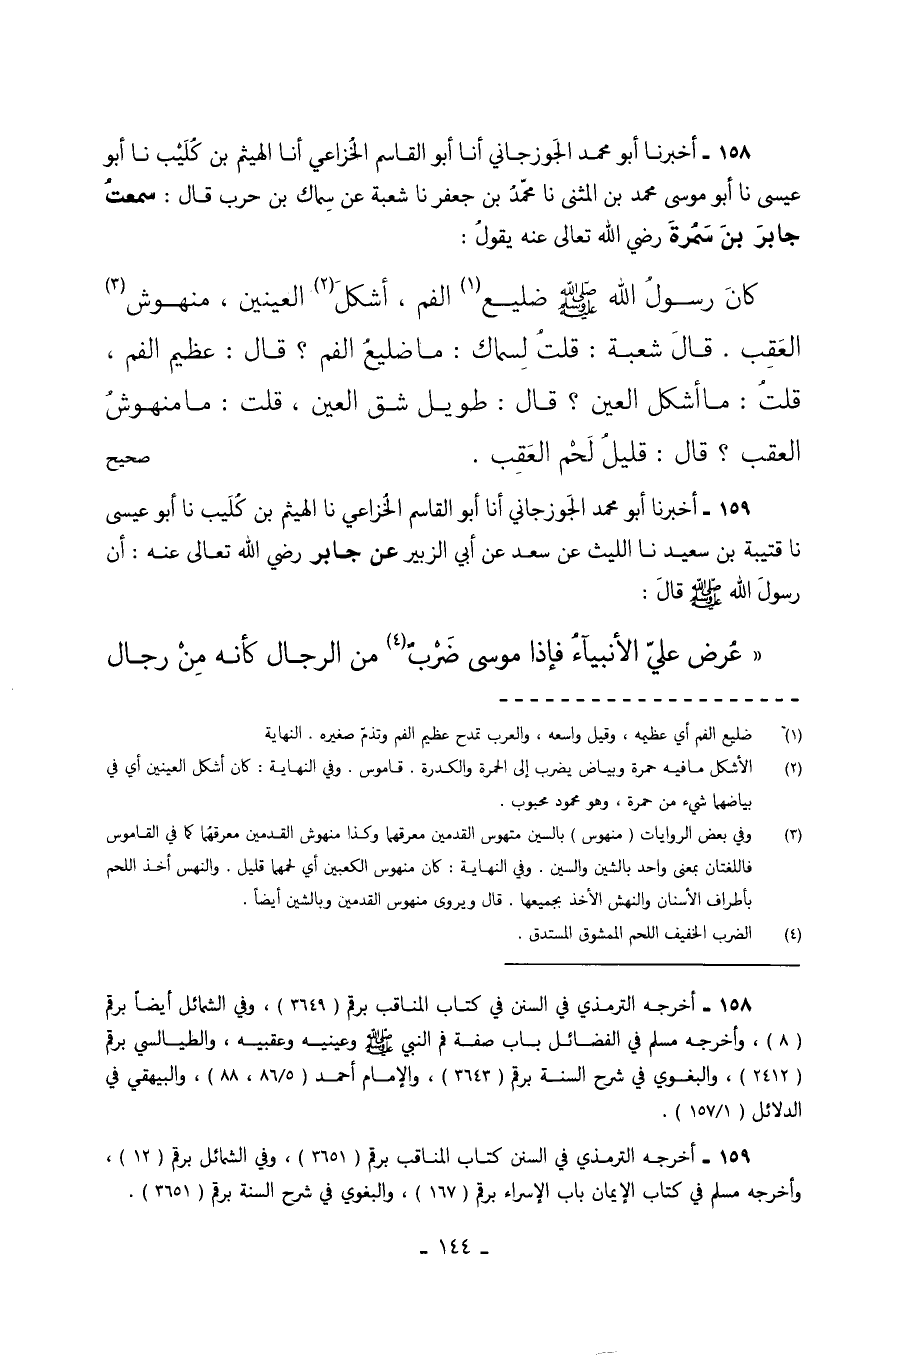 ١٥٨ ـ أخبرنا أبو محمد الجَوزجاني أنا أبو القاسم الخُزاعي أنا الهيثم بن كُلَيْب نا أبو
عيسى نا أبو موسى محمد بن المثنى نا محمّدُ بن جعفر نا شعبة عن سِماك بن حرب قال : سمعتُ
جابرَ بنَ سَمُرةَ رضي الله تعالى عنه يقولُ :
كانَ رسولُ الله ﷺ ضليع(١) الفم ، أشكلَ(٢) العينين ، منهوش(٣)
العَقِب . قالَ شعبة : قلتُ لِسماك : ماضليعُ الفم ؟ قال : عظيم الفم ،
قلتُ : ماأشكل العين ؟ قال : طويل شق العين ، قلت : مامنهوشُ
العقب ؟ قال : قليلُ لَحْم العَقِب . صحيح
١٥٩ ـ أخبرنا أبو محمد الجَوزجاني أنا أبو القاسم الخُزاعي نا الهيثم بن كُلَيب نا أبو عيسى
نا قتيبة بن سعيد نا الليث عن سعد عن أبي الزبير عن جابر رضي الله تعالى عنه : أن
رسولَ الله ﷺ قالَ :
« عُرض عليّ الأنبيآءُ فإذا موسى ضَرْبٌ(٤) من الرجال كأنه مِنْ رجال
(١) ضليع الفم أي عظيمه ، وقيل واسعه ، والعرب تمدح عظيم الفم وتذمّ صغيره . النهاية
(٢) الأشكل مافيه حمرة وبياض يضرب إلى الحمرة والكدرة . قاموس . وفي النهاية : كان أشكل العينين أي في
بياضها شيء من حمرة ، وهو محمود محبوب .
(٣) وفي بعض الروايات ( منهوس ) بالسين منهوس القدمين معرقها وكذا منهوش القدمين معرقهما كما في القاموس
فاللغتان بمعنى واحد بالشين والسين . وفي النهاية : كان منهوس الكعبين أي لحمها قليل . والنهس أخذ اللحم
بأطراف الأسنان والنهش الأخذ بجميعها . قال ويروى منهوس القدمين وبالشين أيضاً .
(٤) الضرب الخفيف اللحم الممشوق المستدق .
١٥٨ ـ أخرجه الترمذي في السنن في كتاب المناقب برقم ( ٣٦٤٩ ) ، وفي الشمائل أيضاً برقم
( ٨ ) ، وأخرجه مسلم في الفضائل باب صفة فم النبي ﷺ وعينيه وعقبيه ، والطيالسي برقم
( ٢٤١٢ ) ، والبغوي في شرح السنة برقم ( ٣٦٤٣ ) ، والإمام أحمد ( ٨٦/٥ ، ٨٨ ) ، والبيهقي في
الدلائل ( ١٥٧/١ ) .
١٥٩ ـ أخرجه الترمذي في السنن كتاب المناقب برقم ( ٣٦٥١ ) ، وفي الشمائل برقم ( ١٢ ) ،
وأخرجه مسلم في كتاب الإيمان باب الإسراء برقم ( ١٦٧ ) ، والبغوي في شرح السنة برقم ( ٣٦٥١ ) .
ـ ١٤٤ ـ